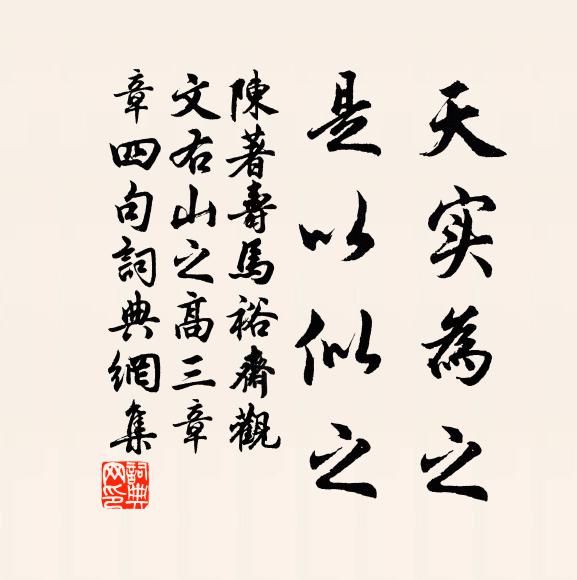 天实為之
是以似之
陳著壽馬裕齋觀
文右山之高三章
章四句詞典網集
詞典网印